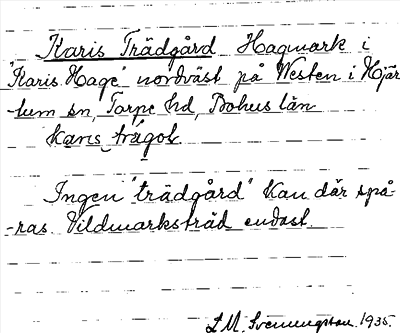 Karis Trädgård Hagmark i
"Karis Hage" nordväst på Westen i Hjär-
tum sn, Torpe hd, Bohus län
karis trágol
Ingen "trädgård" kan där spå-
-ras. Vildmarksträd endast.
L.M. Svenungsson 1935.